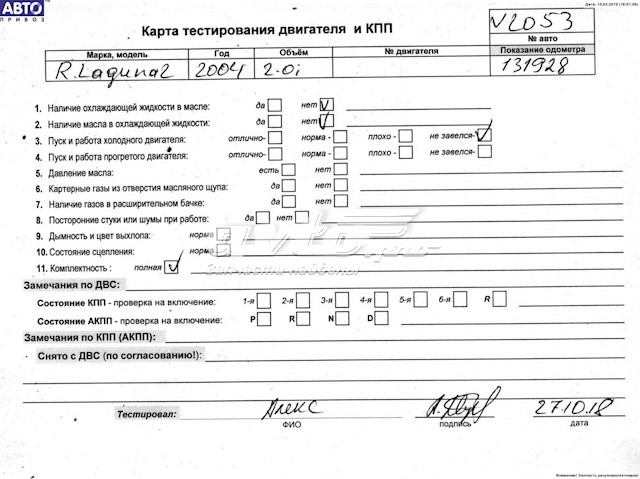 АВТО
ПРИВОЗ
Карта тестирования двигателя и КПП
V2053
№ авто
Марка, модель Год Объём № двигателя Показание одометра
R.Laguna2 2004 2.0i 131928
1. Наличие охлаждающей жидкости в масле: да нет
2. Наличие масла в охлаждающей жидкости: да нет
3. Пуск и работа холодного двигателя: отлично- норма - плохо - не завелся-
4. Пуск и работа прогретого двигателя: отлично- норма - плохо - не завелся-
5. Давление масла: есть нет
6. Картерные газы из отверстия масляного щупа: да нет
7. Наличие газов в расширительном бачке: да нет
8. Посторонние стуки или шумы при работе: да нет
9. Дымность и цвет выхлопа: норма
10. Состояние сцепления: норма
11. Комплектность : полная
Замечания по ДВС:
Состояние КПП - проверка на включение: 1-я 2-я 3-я 4-я 5-я 6-я R
Состояние АКПП - проверка на включение: P R N D
Замечания по КПП (АКПП):
Снято с ДВС (по согласованию!):
Тестировал: Алекс 27.10.18
ФИО подпись дата